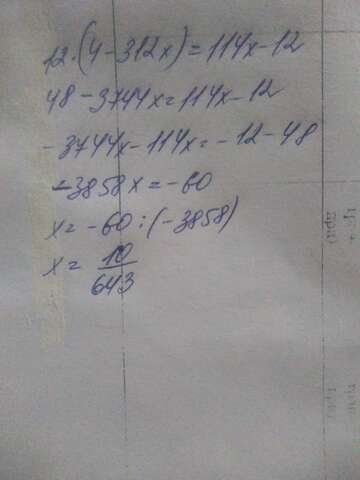 12·(4-312x)=114x-12
48-3744x=114x-12
-3744x-114x=-12-48
-3858x=-60
x=-60:(-3858)
x=10/643